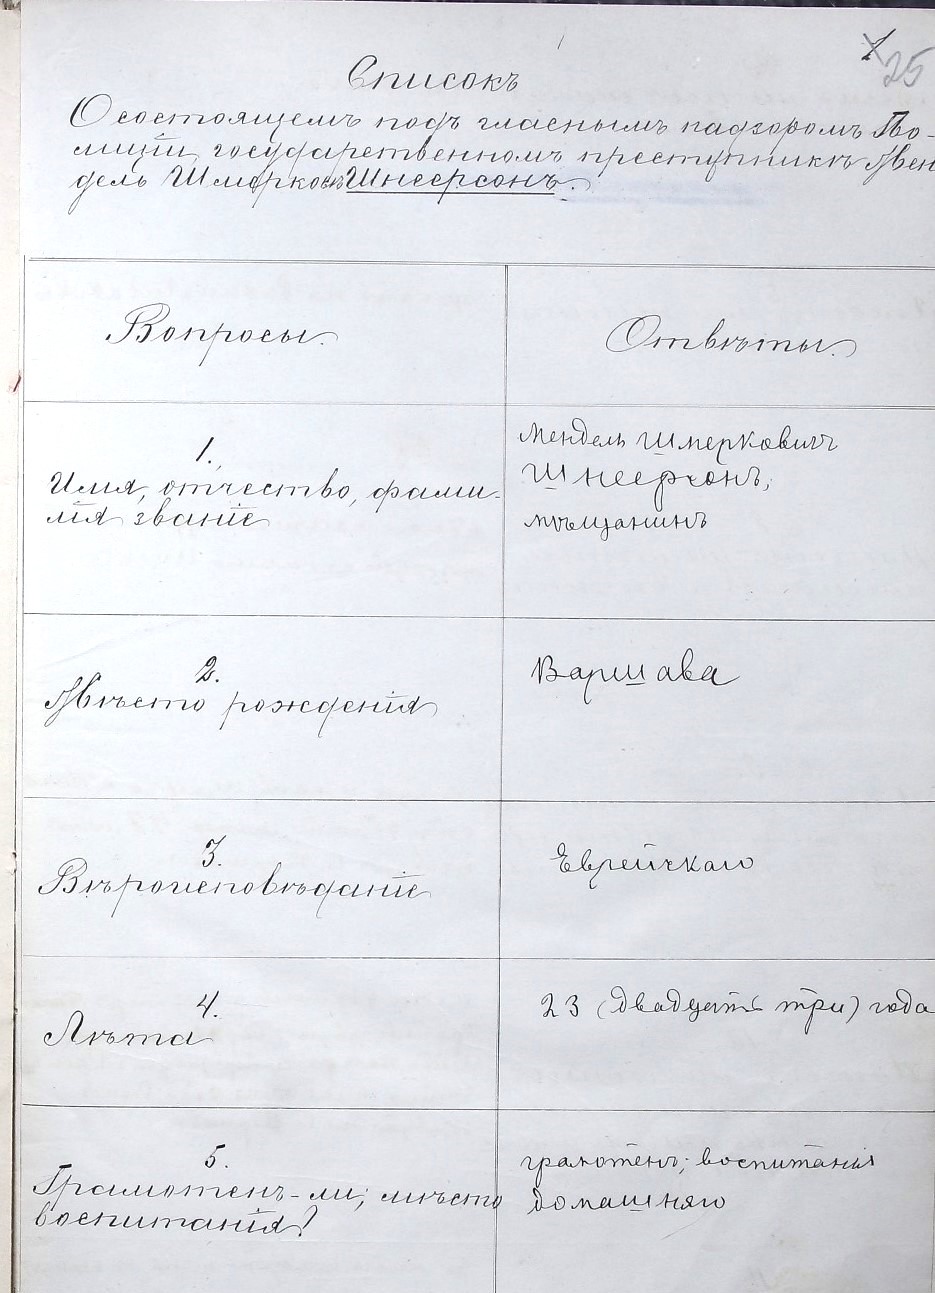 25
Списокъ
О состоящемъ подъ гласнымъ надзоромъ По-
лиціи, государственномъ преступникѣ Мен
дель Шмерковъ Шнеерсонъ.
Вопросы.
Отвѣты.
1.
Имя, отчество, фами-
лія званіе
Мендель Шмерковичъ
Шнеерсонъ,
мѣщанинъ
2.
Мѣсто рожденія
Варшава
3.
Вѣроисповѣданіе
Еврейскаго
4.
Лѣта
23 (двадцать три) года
5.
Грамотенъ-ли; мѣсто
воспитанія?
грамотенъ; воспитанія
домашняго